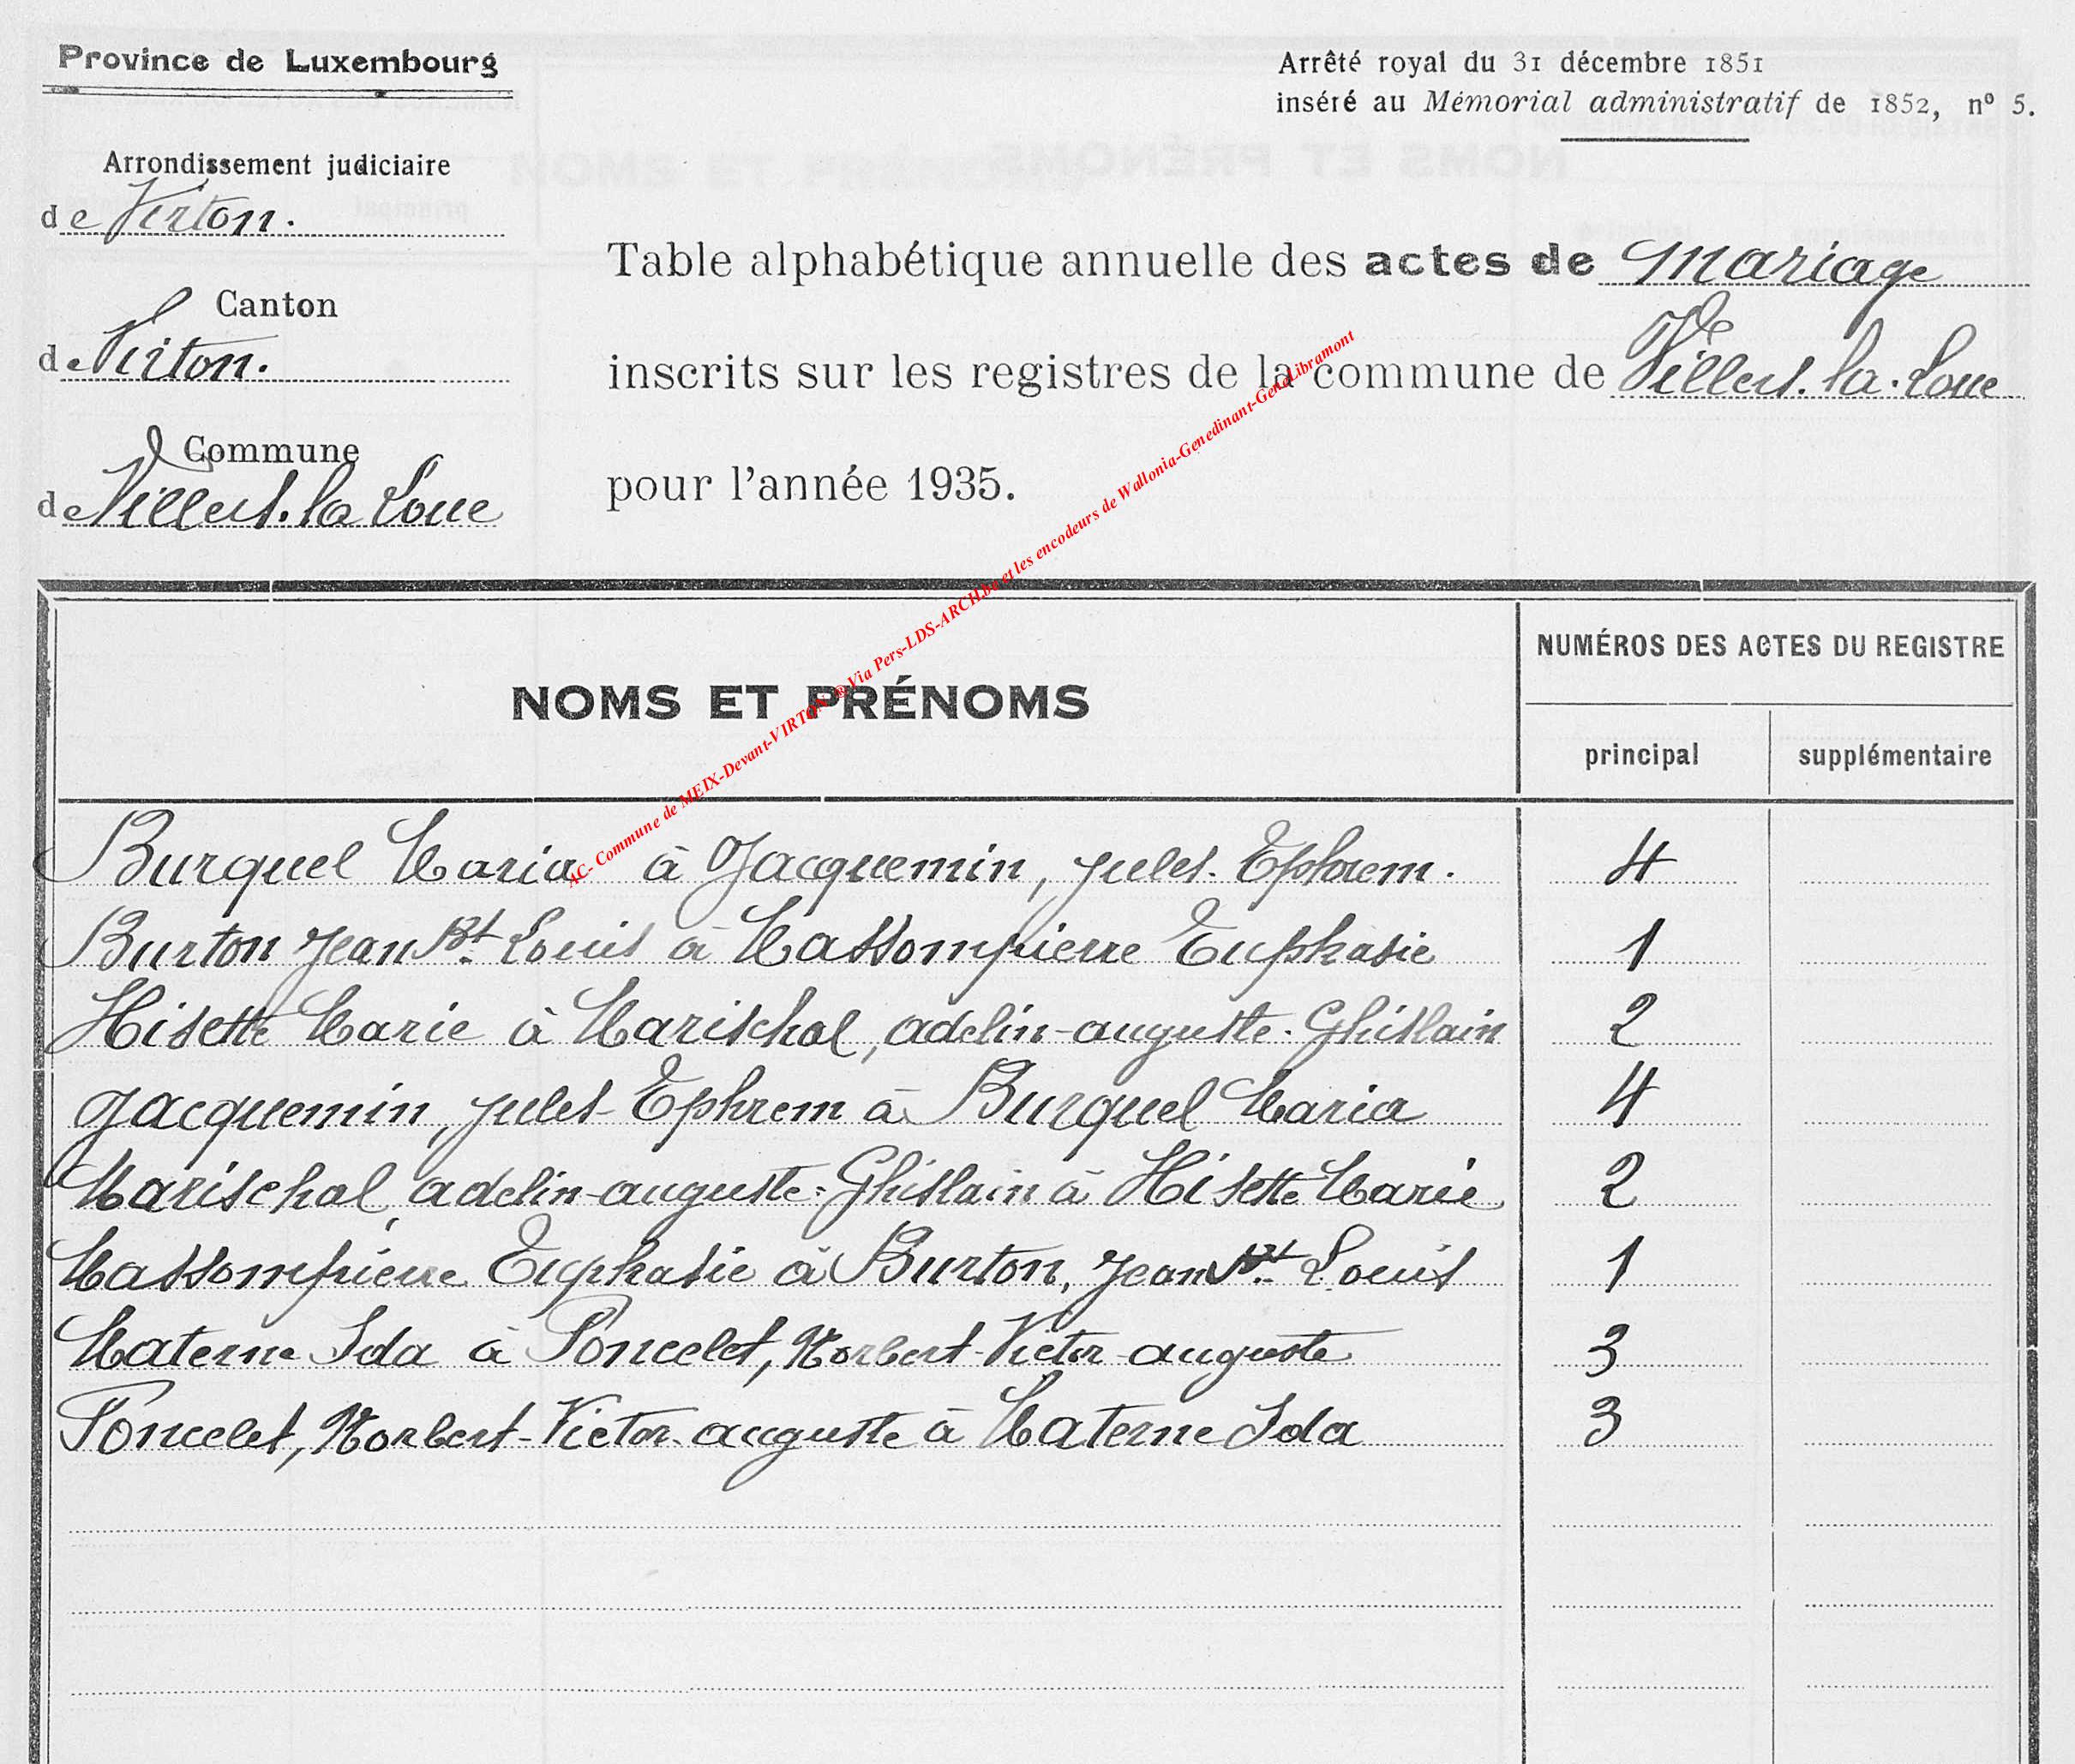 Province de Luxembourg
Arrêté royal du 31 décembre 1851
inséré au Mémorial administratif de 1852, nº 5.
Arrondissement judiciaire
de Virton.
Canton
de Virton.
Commune
de Villers-la-Loue
Table alphabétique annuelle des actes de Mariage
inscrits sur les registres de la commune de Villers-la-Loue
pour l'année 1935.
AC- Commune de MEIX-Devant-VIRTON ® Via Pers-LDS-ARCH.be et les encodeurs de Wallonia-Genedinant-GeneLibramont
NOMS ET PRÉNOMS
NUMÉROS DES ACTES DU REGISTRE
principal supplémentaire
Burquel Maria à Jacquemin, Jules-Ephrem. 4
Burton Jean Bt. Louis à Massompierre Euphasie 1
Hisette Marie à Marischal, adelin-auguste-Ghislain 2
Jacquemin, Jules-Ephrem à Burquel Maria 4
Marischal, adelin-auguste-Ghislain à Hisette Marie 2
Massompierre Euphasie à Burton, Jean Bt. Louis 1
Materne Ida à Poncelet, Norbert-Victor-auguste 3
Poncelet, Norbert-Victor-auguste à Materne Ida 3